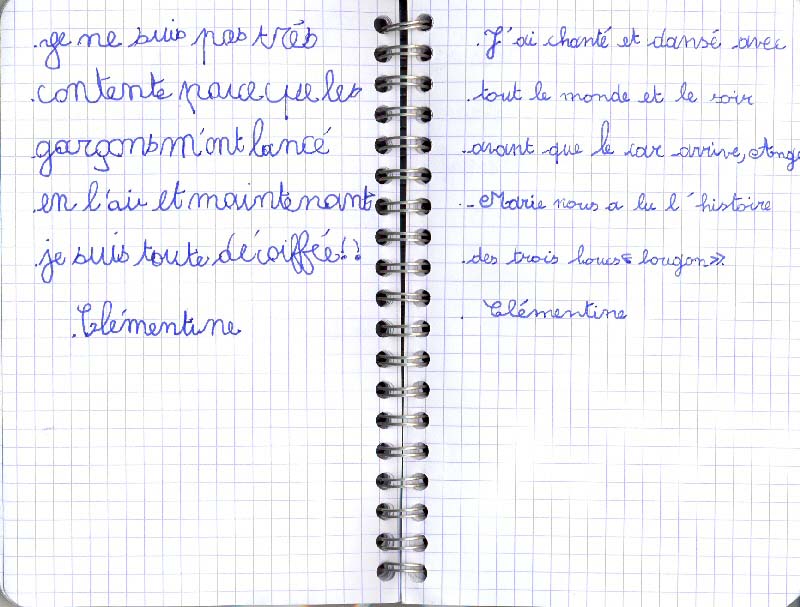 je ne suis pas très
contente parce que les
garçons m'ont lancé
en l'air et maintenant
je suis toute décoiffée!!
Clémentine
J'ai chanté et dansé avec
tout le monde et le soir
avant que le car arrive, Ange
-Marie nous a lu l'histoire
des trois boucs « bougon ».
Clémentine